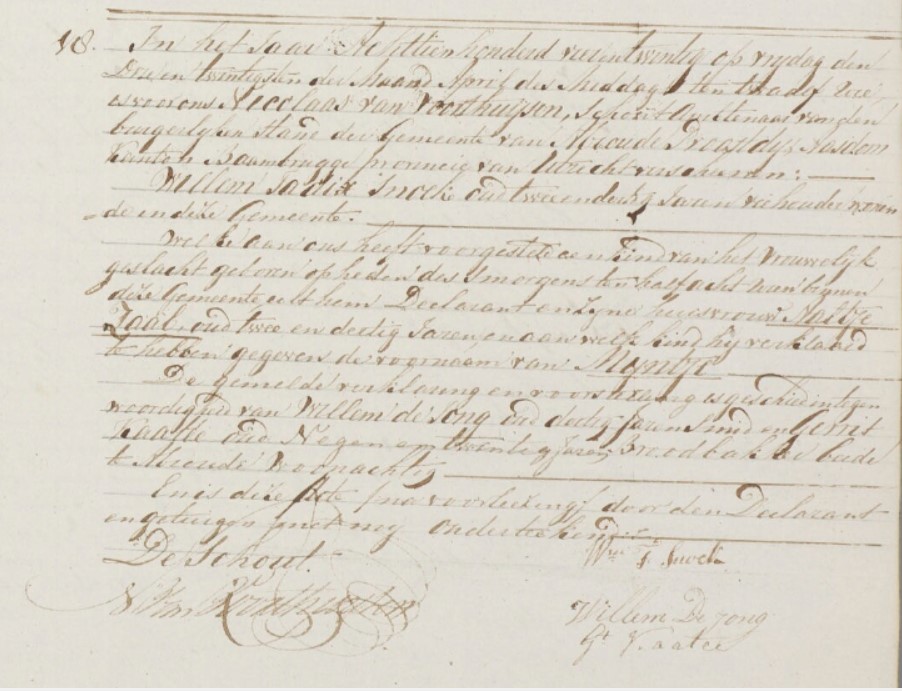 18. In het Jaar Achttien honderd vierentwintig op vrydag den
Drie en twintigsten der Maand April des Middags ten twaalf Ure
is voor ons Nicolaas van Voorthuijsen, Schout Amptenaar van den
burgerlyken Stand der Gemeente van Abcoude Proosdy & Aasdom
Kanton Baambrugge provincie van Utrecht verschenen:
Willem Snoek oud twee en dertig Jaren wonen
de in dize Gemeente.
Welke aan ons heeft voorgesteld een kind van het Vrouwelyk
geslacht geboren op heden des smorgens ten half acht uren binnen
dize Gemeente uit hem Declarant en zyne huysvrouw
oud twee en dertig Jaren en aan welk kind hy verklaard
te hebben gegeven de voornaam van Myntje
De gemelde verklaring en voorstelling is geschied in tegen
woordigheid van Willem de Jong oud dertig Jaren Smid en Gerrit
Kaatee oud Negen en twintig Jaren Broodbakker beide
te Abcoude Woonachtig
En is dize Acte na voorlezing door den Declarant
en getuigen met ons Ondertekend
De Schout
N Van Voorthuijsen
Wm Snoek
Willem De Jong
Gt Kaatee